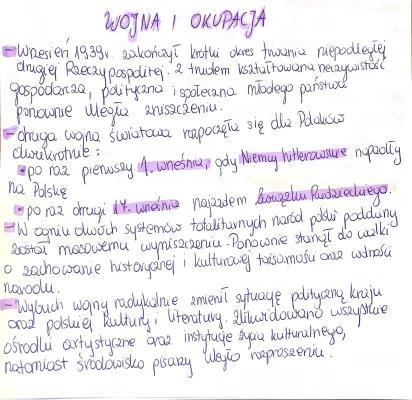 WOJNA I OKUPACJA
- Wrzesień 1939r. zakończył krótki okres trwania niepodległej
drugiej Rzeczypospolitej. Z trudem kształtowana rzeczywistość
gospodarcza, polityczna i społeczna młodego państwa
ponownie uległa zniszczeniu.
- druga wojna światowa rozpoczęła się dla Polaków
dwukrotnie:
• po raz pierwszy 1. września, gdy Niemcy hitlerowskie napadły
na Polskę
• po raz drugi 17. września najazdem Związku Radzieckiego.
- W ogniu dwóch systemów totalitarnych naród polski poddany
został masowemu wyniszczeniu. Ponownie stanął do walki
o zachowanie historycznej i kulturowej tożsamości oraz wolności
narodu.
- Wybuch wojny radykalnie zmienił sytuację polityczną kraju
oraz polskiej kultury i literatury. Zlikwidowano wszystkie
ośrodki artystyczne oraz instytucje życia kulturalnego,
natomiast środowisko pisarzy uległo rozproszeniu.